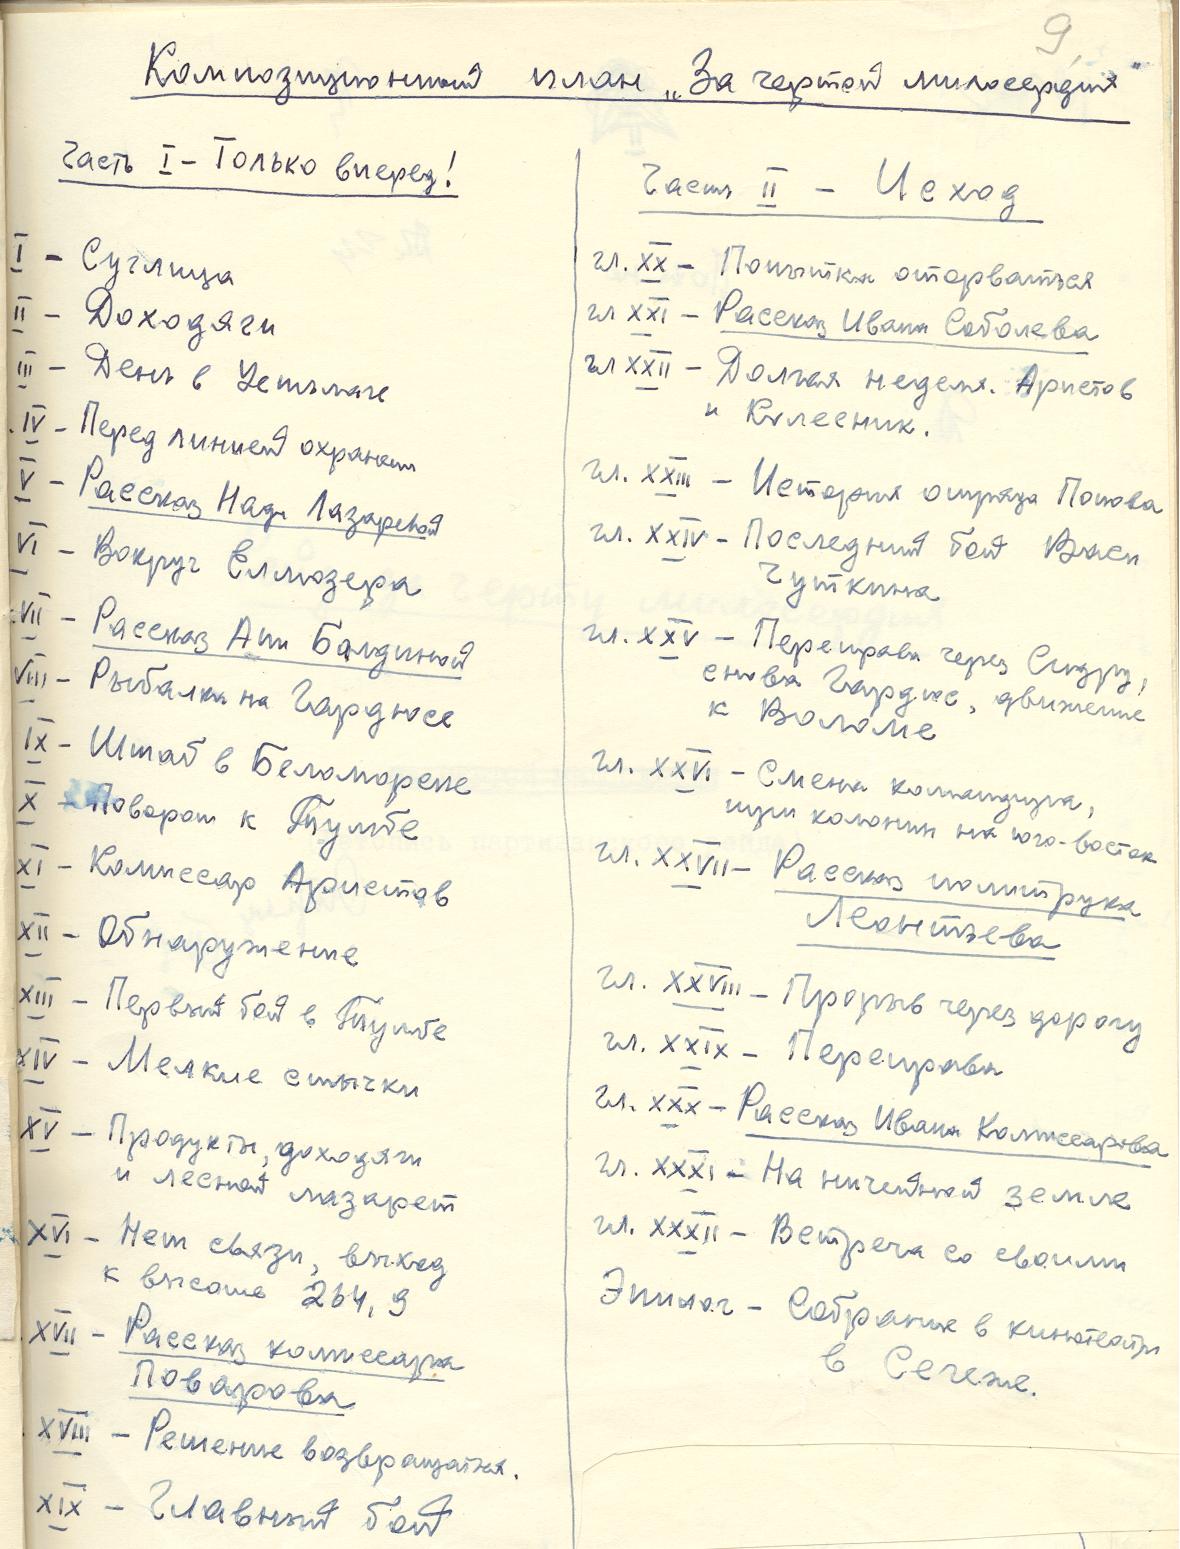 9.
Композиционный план „За чертой милосердия"
Часть I – Только вперед!
I – Суглица
II – Доходяги
III – День в Услаге
IV – Перед линией охраны
V – Рассказ Нади Лазаревой
VI – Вокруг Елмозера
VII – Рассказ Ани Балдиной
VIII – Рыбалка на Гардюсе
IX – Штаб в Беломорске
X – Поворот к Тумбе
XI – Комиссар Аристов
XII – Обнаружение
XIII – Первый бой в Тумбе
XIV – Мелкие стычки
XV – Продукты, доходяги
и лесной лазарет
XVI – Нет связи, выход
к высоте 264,9
XVII – Рассказ комиссара
Поварова
XVIII – Решение возвращаться.
XIX – Главный бой
Часть II – Исход
гл. XX – Попытка оторваться
гл XXI – Рассказ Ивана Соболева
гл XXII – Долгая неделя. Аристов
и Колесник.
гл. XXIII – История отряда Попова
гл. XXIV – Последний бой Васи
Чуткина
гл. XXV – Переправа через Сидру,
снова Гардюс, движение
к Воломе
гл. XXVI – Смена командира,
путь колонны на юго-восток
гл. XXVII – Рассказ политрука
Леонтьева
гл. XXVIII – Прорыв через дорогу
гл. XXIX – Переправа
гл. XXX – Рассказ Ивана Комиссарова
гл. XXXI – На ничейной земле
гл. XXXII – Встреча со своими
Эпилог – Собрание в кинотеатре
в Сегеже.